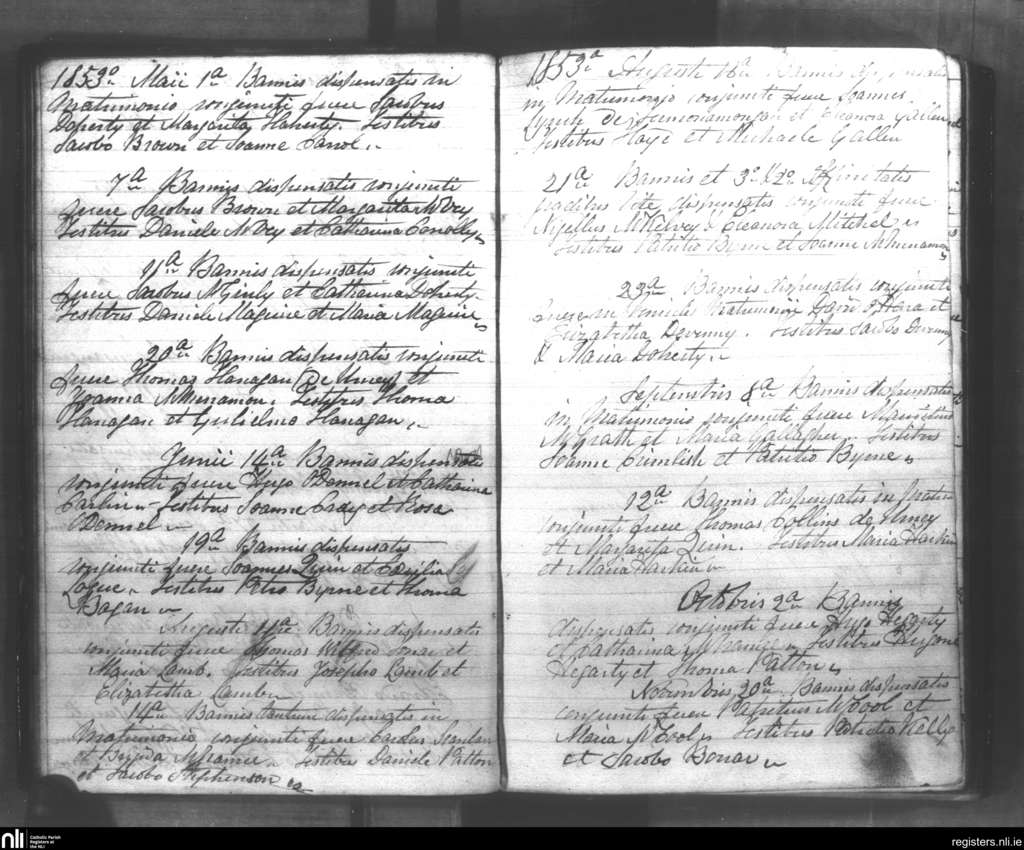 1853º Maii 1ª Bannis dispensatis in
Matrimonio conjuncti fuere Jacobus
Doherty et Margarita Flaherty. Testibus
Jacobo Brown et Joanne Carrol
7ª Bannis dispensatis conjuncti
fuere Jacobus Brown et Margarita
Testibus Daniele et Catharina Conolly
11ª Bannis dispensatis conjuncti
fuere Jacobus McGinly et Catharina Doherty.
Testibus Daniele Maguire et Maria Maguire
20ª Bannis dispensatis conjuncti
fuere Thomas Flanagan (de Urney) et
Joanna McMenamon. Testibus Thoma
Flanagan et Gulielmo Flanagan
Junii 14ª Bannis dispensatis
conjuncti fuere Hugo ODonnel et Catharina
Carlin Testibus Joanne et Rosa
ODonnel
19ª Bannis dispensatis
conjuncti fuere Joannes Quin et Cecilia
Logue Testibus Petro Byrne et Thoma
Bogan
Augusti 11ª Bannis dispensatis
conjuncti fuere Thomas et
Maria Lamb. Testibus Josepho Lamb et
Elizabetha Lamb
14ª Bannis tantum dispensatis in
Matrimonio conjuncti fuere Carolus Scanlan
et Brigida Testibus Daniele Patton
et Jacobo Stephenson
1853ª Augusti 16ª Bannis dispensatis
in Matrimonio conjuncti fuere Joannes
de et Eleanora Gallen
Testibus et Michaele Gallen
21ª Bannis et 3º & 2º Affinitatis
gradibus rite dispensatis conjuncti fuere
Nigellus McKelvey & Eleanora Mitchel
Testibus Patritio Byrne et Joanne McMenamon
23ª Bannis dispensatis conjuncti
fuere in Matrimonii OHara et
Elizabetha Devenny. Testibus Jacobo Devenny
& Maria Doherty
Septembris 8ª Bannis dispensatis
in Matrimonio conjuncti fuere Mauritius
McGrath et Maria Gallagher. Testibus
Joanne Crumlish et Patritio Byrne
12ª Bannis dispensatis in
conjuncti fuere Thomas Collins de Urney
et Margarita Quin. Testibus Maria Harkin
et Maria Harkin
Octobris 2ª Bannis
dispensatis conjuncti fuere Hugo Hegarty
et Catharina Testibus Eugene
Hegarty et Thoma Patton
Novembris 20ª Bannis dispensatis
conjuncti fuere Patritius McCool et
Maria McCool Testibus Patritio Kelly
et Jacobo Bonar
nli
Catholic Parish
Registers at
the NLI
registers.nli.ie